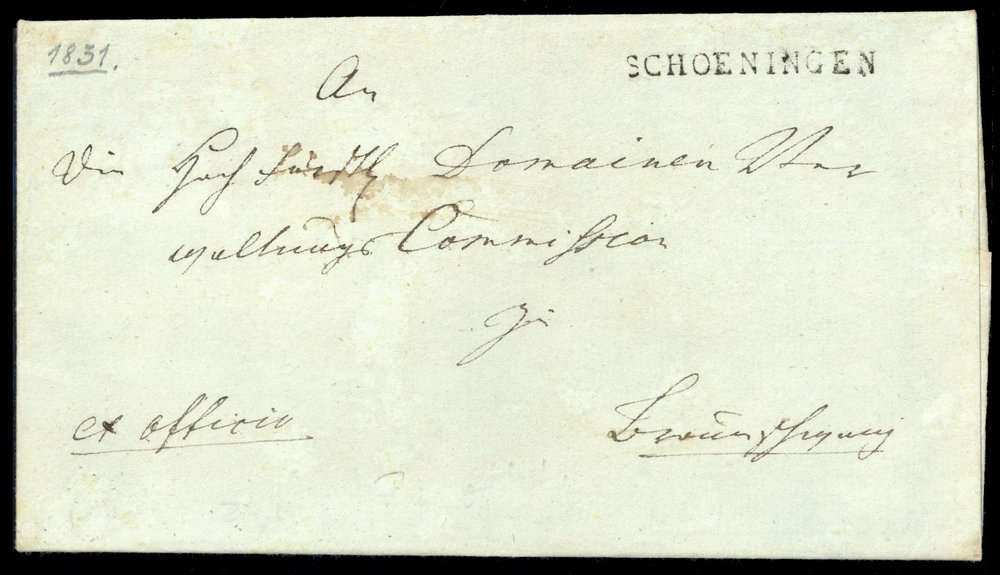 1831.
SCHOENINGEN
An
Die Hochfürstl Domainen Ver
waltungs Commission
Zu
ex officio
Braunschweig